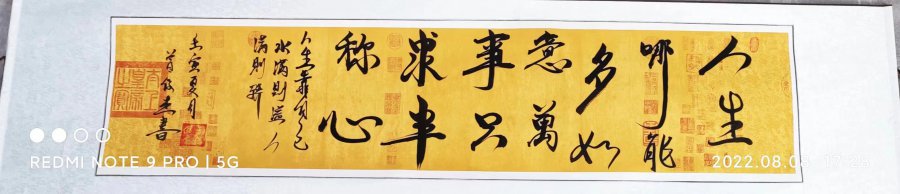 人生
哪能
多如
意萬
事只
求半
称心
人生靠自己
水滿則溢人
滿則驕
壬寅夏月
書
REDMI NOTE 9 PRO | 5G
2022.08.08